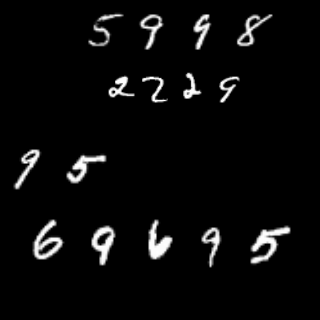 5 9 9 8
2 2 2 9
9 5
6 9 6 9 5